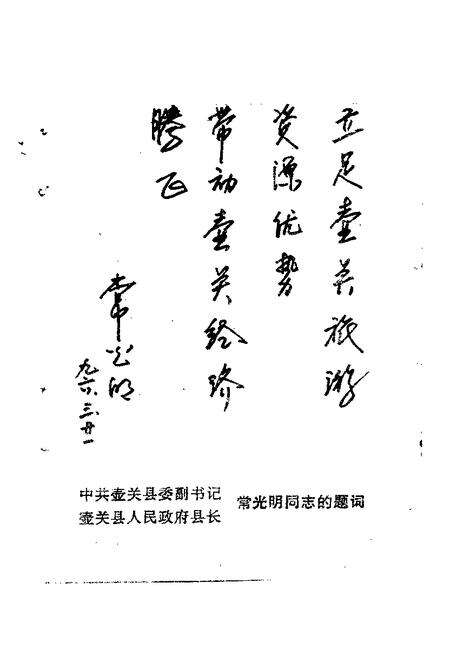 立足壶关旅游
资源优势
带动壶关经济
腾飞
常光明
九六.三.廿一
中共壶关县委副书记
壶关县人民政府县长
常光明同志的题词